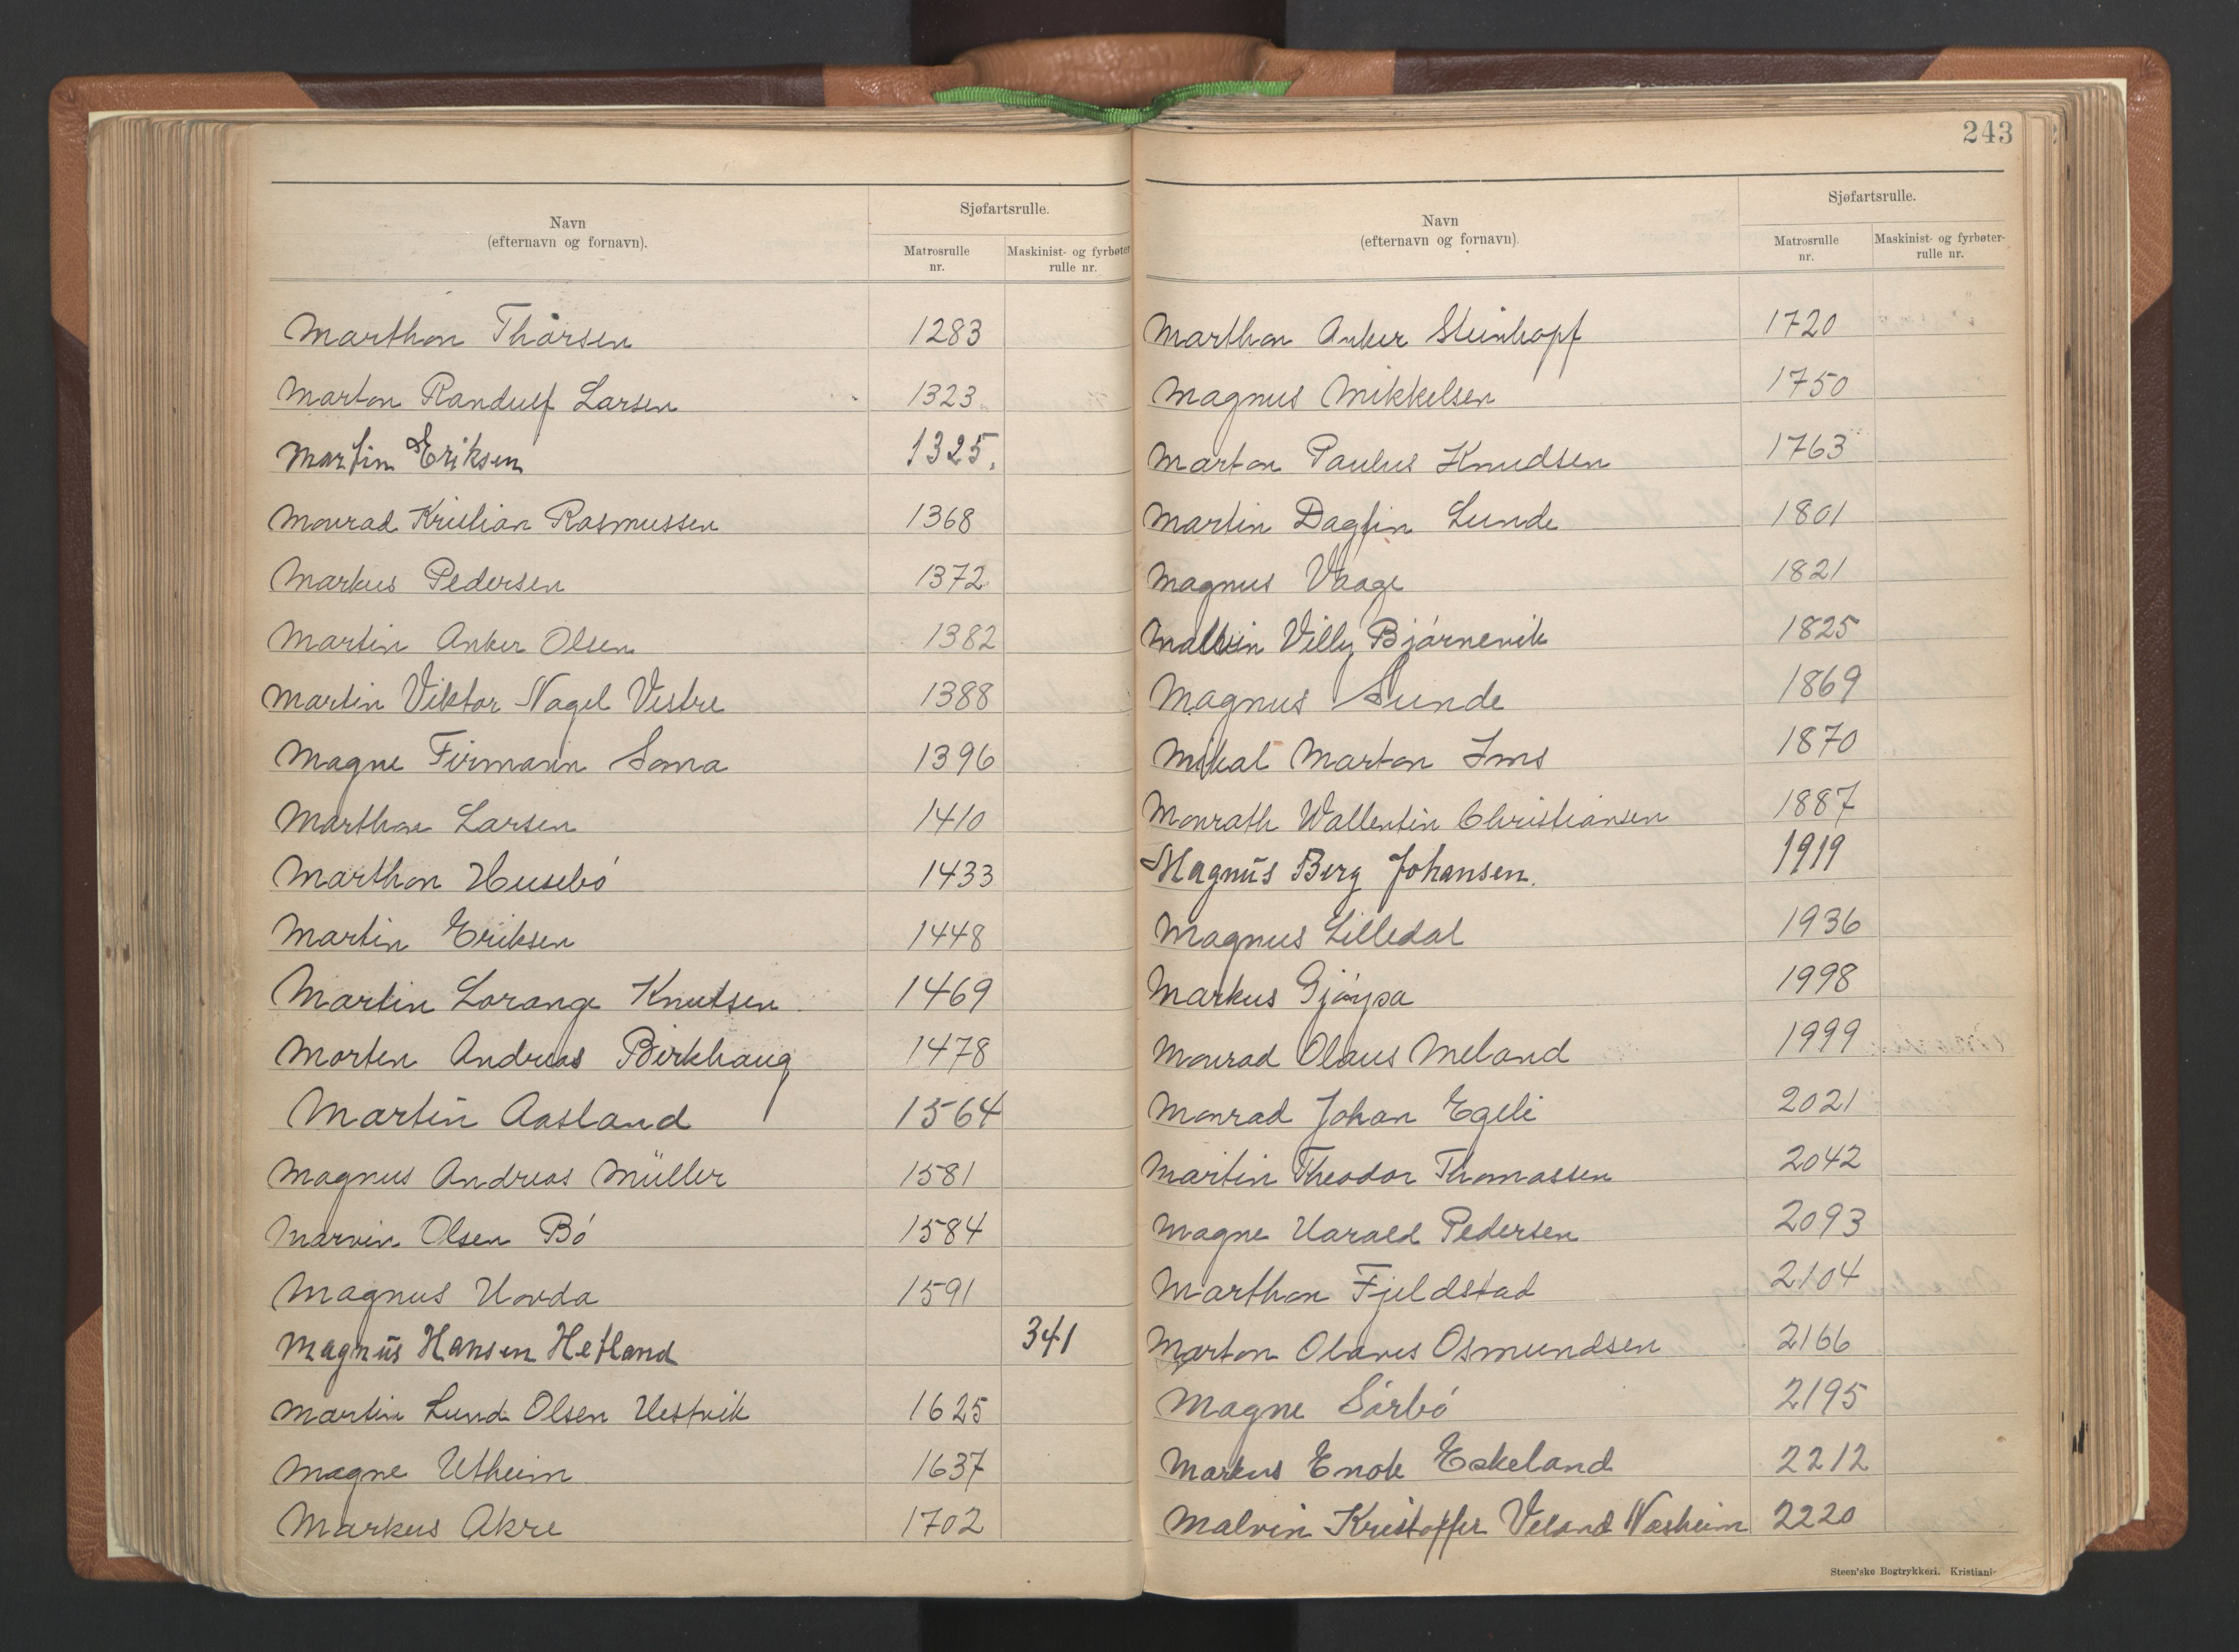 Navn
(efternavn og fornavn).
Sjøfartsrulle.
Matrosrulle nr.
Maskinist- og fyrbøter rulle nr.
Marthon Thorsen 1283
Marton Randulf Larsen 1323
Martin Eriksen 1325.
Monrad Kristian Rasmussen 1368
Markus Pedersen 1372
Martin Anker Olsen 1382
Martin Viktor Nagel Vestre 1388
Magne Firmann Soma 1396
Marthon Larsen 1410
Marthon Husebø 1433
Martin Eriksen 1448
Martin Lorange Knutsen 1469
Morten Andreas Birkhaug 1478
Martin Aasland 1564
Magnus Andreas Müller 1581
Marvin Olsen Bø 1584
Magnus Hovda 1591
Magnus Hansen Hetland 341
Martin Lund Olsen Vestvik 1625
Magne Utheim 1637
Markus Akre 1702
243
Navn
(efternavn og fornavn).
Sjøfartsrulle.
Matrosrulle nr.
Maskinist- og fyrbøter- rulle nr.
Marthon Anker Steinkopf 1720
Magnus Mikkelsen 1750
Marton Paulus Knudsen 1763
Martin Dagfin Lunde 1801
Magnus Vaage 1821
Villy Bjørnevik 1825
Magnus Sunde 1869
Mikal Marton Ims 1870
Monrath Wallentin Christiansen 1887
Magnus Berg Johansen. 1919
Magnus Lilledal 1936
Markus 1998
Monrad Olaus Meland 1999
Monrad Johan Egeli 2021
Martin Theodor Thomassen 2042
Magne Harald Pedersen 2093
Marthon Fjeldstad 2104
Marton Olaves Osmundsen 2166
Magne Sørbø 2195
Markus Enok Eskeland 2212
Malvin Kristoffer Veland Næsheim 2220
Steen'ske Bogtrykkeri.